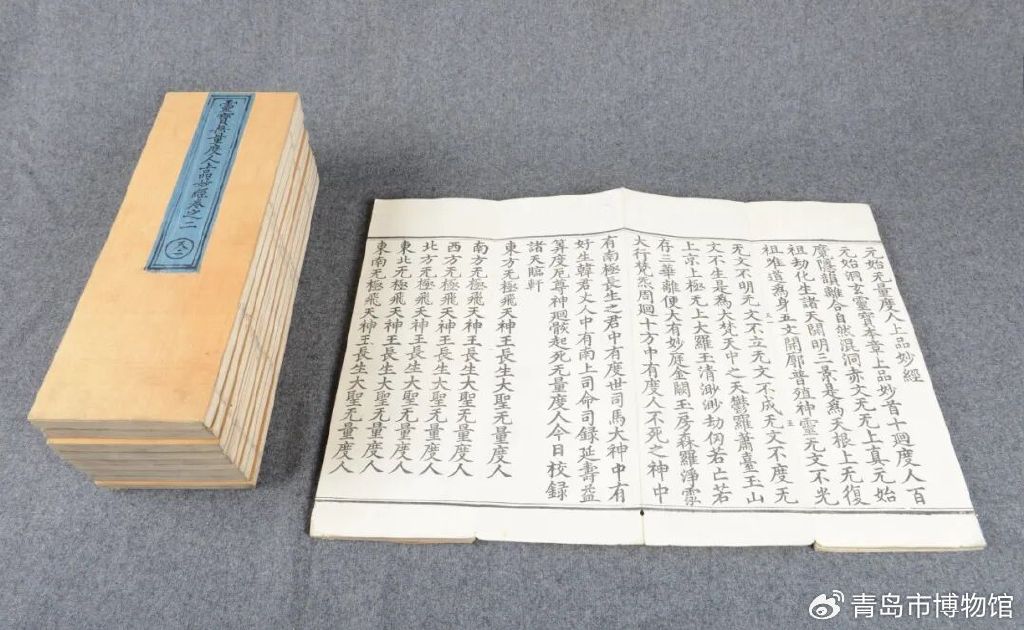 靈寳无量度人上品妙經卷之二
元始无量度人上品妙經
元始洞玄靈寳本章上品妙首十迴度人百
魔隱韻離合自然混洞赤文无无上真元始
祖劫化生諸天開明三景是為天根上无復
祖唯道為身五文開廓普殖神靈无文不光
无文不明无文不立无文不成无文不度无
文不生是為大梵天中之天鬱羅蕭臺玉山
上京上極无上大羅玉清渺渺劫仞若亡若
存三華離便大有妙庭金闕玉房森羅淨泓
大行梵炁周迴十方中有度人不死之神中
有南極長生之君中有度世司馬大神中有
好生韓君丈人中有南上司命司録延壽益
筭度厄尊神迴骸起死无量度人今日校録
諸天臨軒
東方无極飛天神王長生大聖无量度人
南方无極飛天神王長生大聖无量度人
西方无極飛天神王長生大聖无量度人
北方无極飛天神王長生大聖无量度人
東北无極飛天神王長生大聖无量度人
東南无極飛天神王長生大聖无量度人
青岛市博物馆